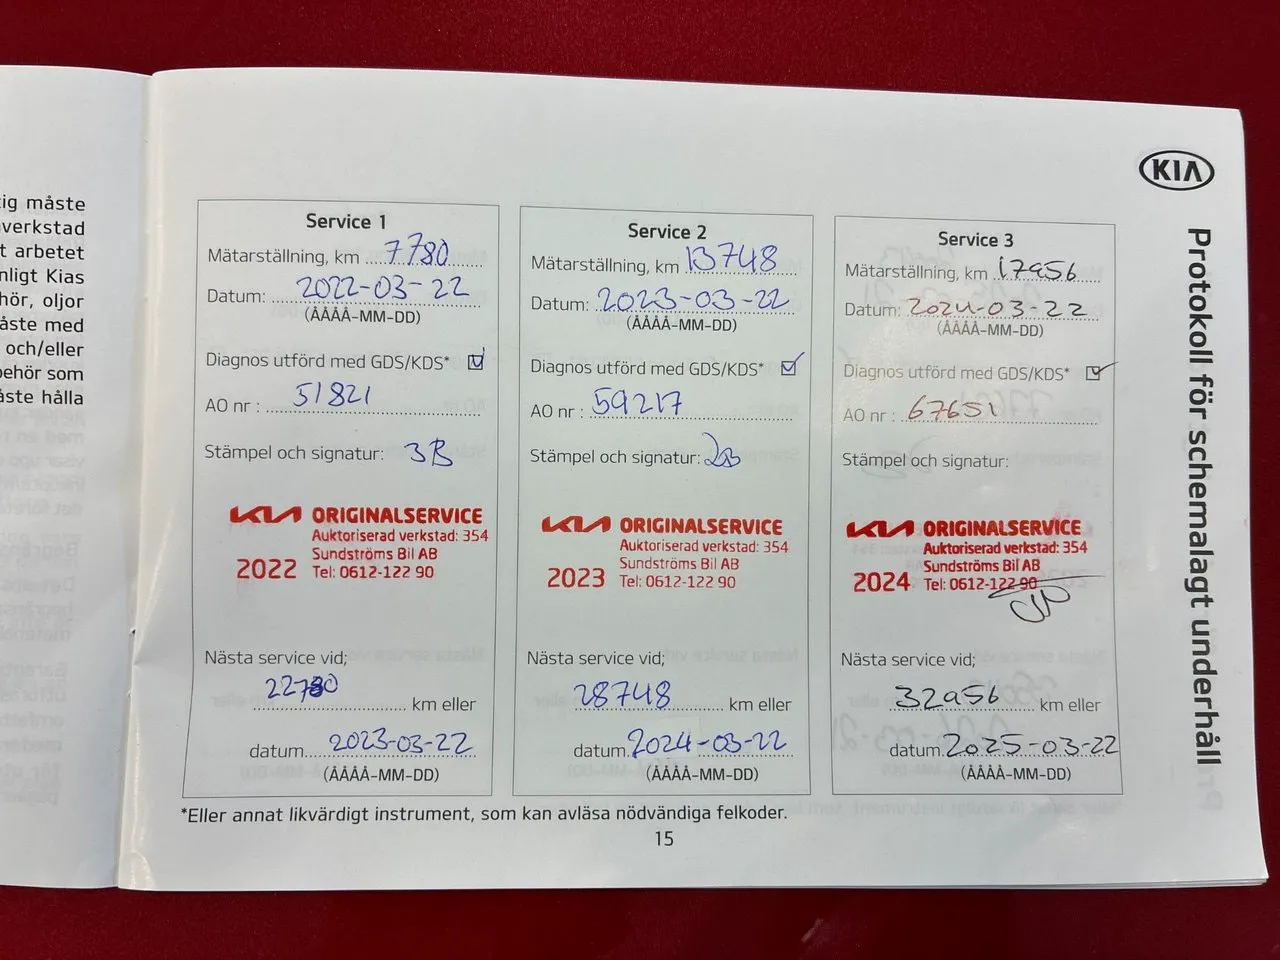 tig måste
verkstad
t arbetet
nligt Kias
hör, oljor
åste med
och/eller
behör som
åste hålla
KIA
Protokoll för schemalagt underhåll
Service 1
Mätarställning, km 7780
Datum: 2022-03-22
(ÅÅÅÅ-MM-DD)
Diagnos utförd med GDS/KDS*
AO nr : 51821
Stämpel och signatur:
KIA ORIGINALSERVICE
Auktoriserad verkstad: 354
Sundströms Bil AB
2022 Tel: 0612-122 90
Nästa service vid;
22780 km eller
datum 2023-03-22
(ÅÅÅÅ-MM-DD)
Service 2
Mätarställning, km 13748
Datum: 2023-03-22
(ÅÅÅÅ-MM-DD)
Diagnos utförd med GDS/KDS*
AO nr : 59217
Stämpel och signatur:
KIA ORIGINALSERVICE
Auktoriserad verkstad: 354
Sundströms Bil AB
2023 Tel: 0612-122 90
Nästa service vid;
28748 km eller
datum 2024-03-22
(ÅÅÅÅ-MM-DD)
Service 3
Mätarställning, km 17956
Datum: 2024-03-22
(ÅÅÅÅ-MM-DD)
Diagnos utförd med GDS/KDS*
AO nr : 67651
Stämpel och signatur:
KIA ORIGINALSERVICE
Auktoriserad verkstad: 354
Sundströms Bil AB
2024 Tel: 0612-122 90
Nästa service vid;
32956 km eller
datum 2025-03-22
(ÅÅÅÅ-MM-DD)
*Eller annat likvärdigt instrument, som kan avläsa nödvändiga felkoder.
15